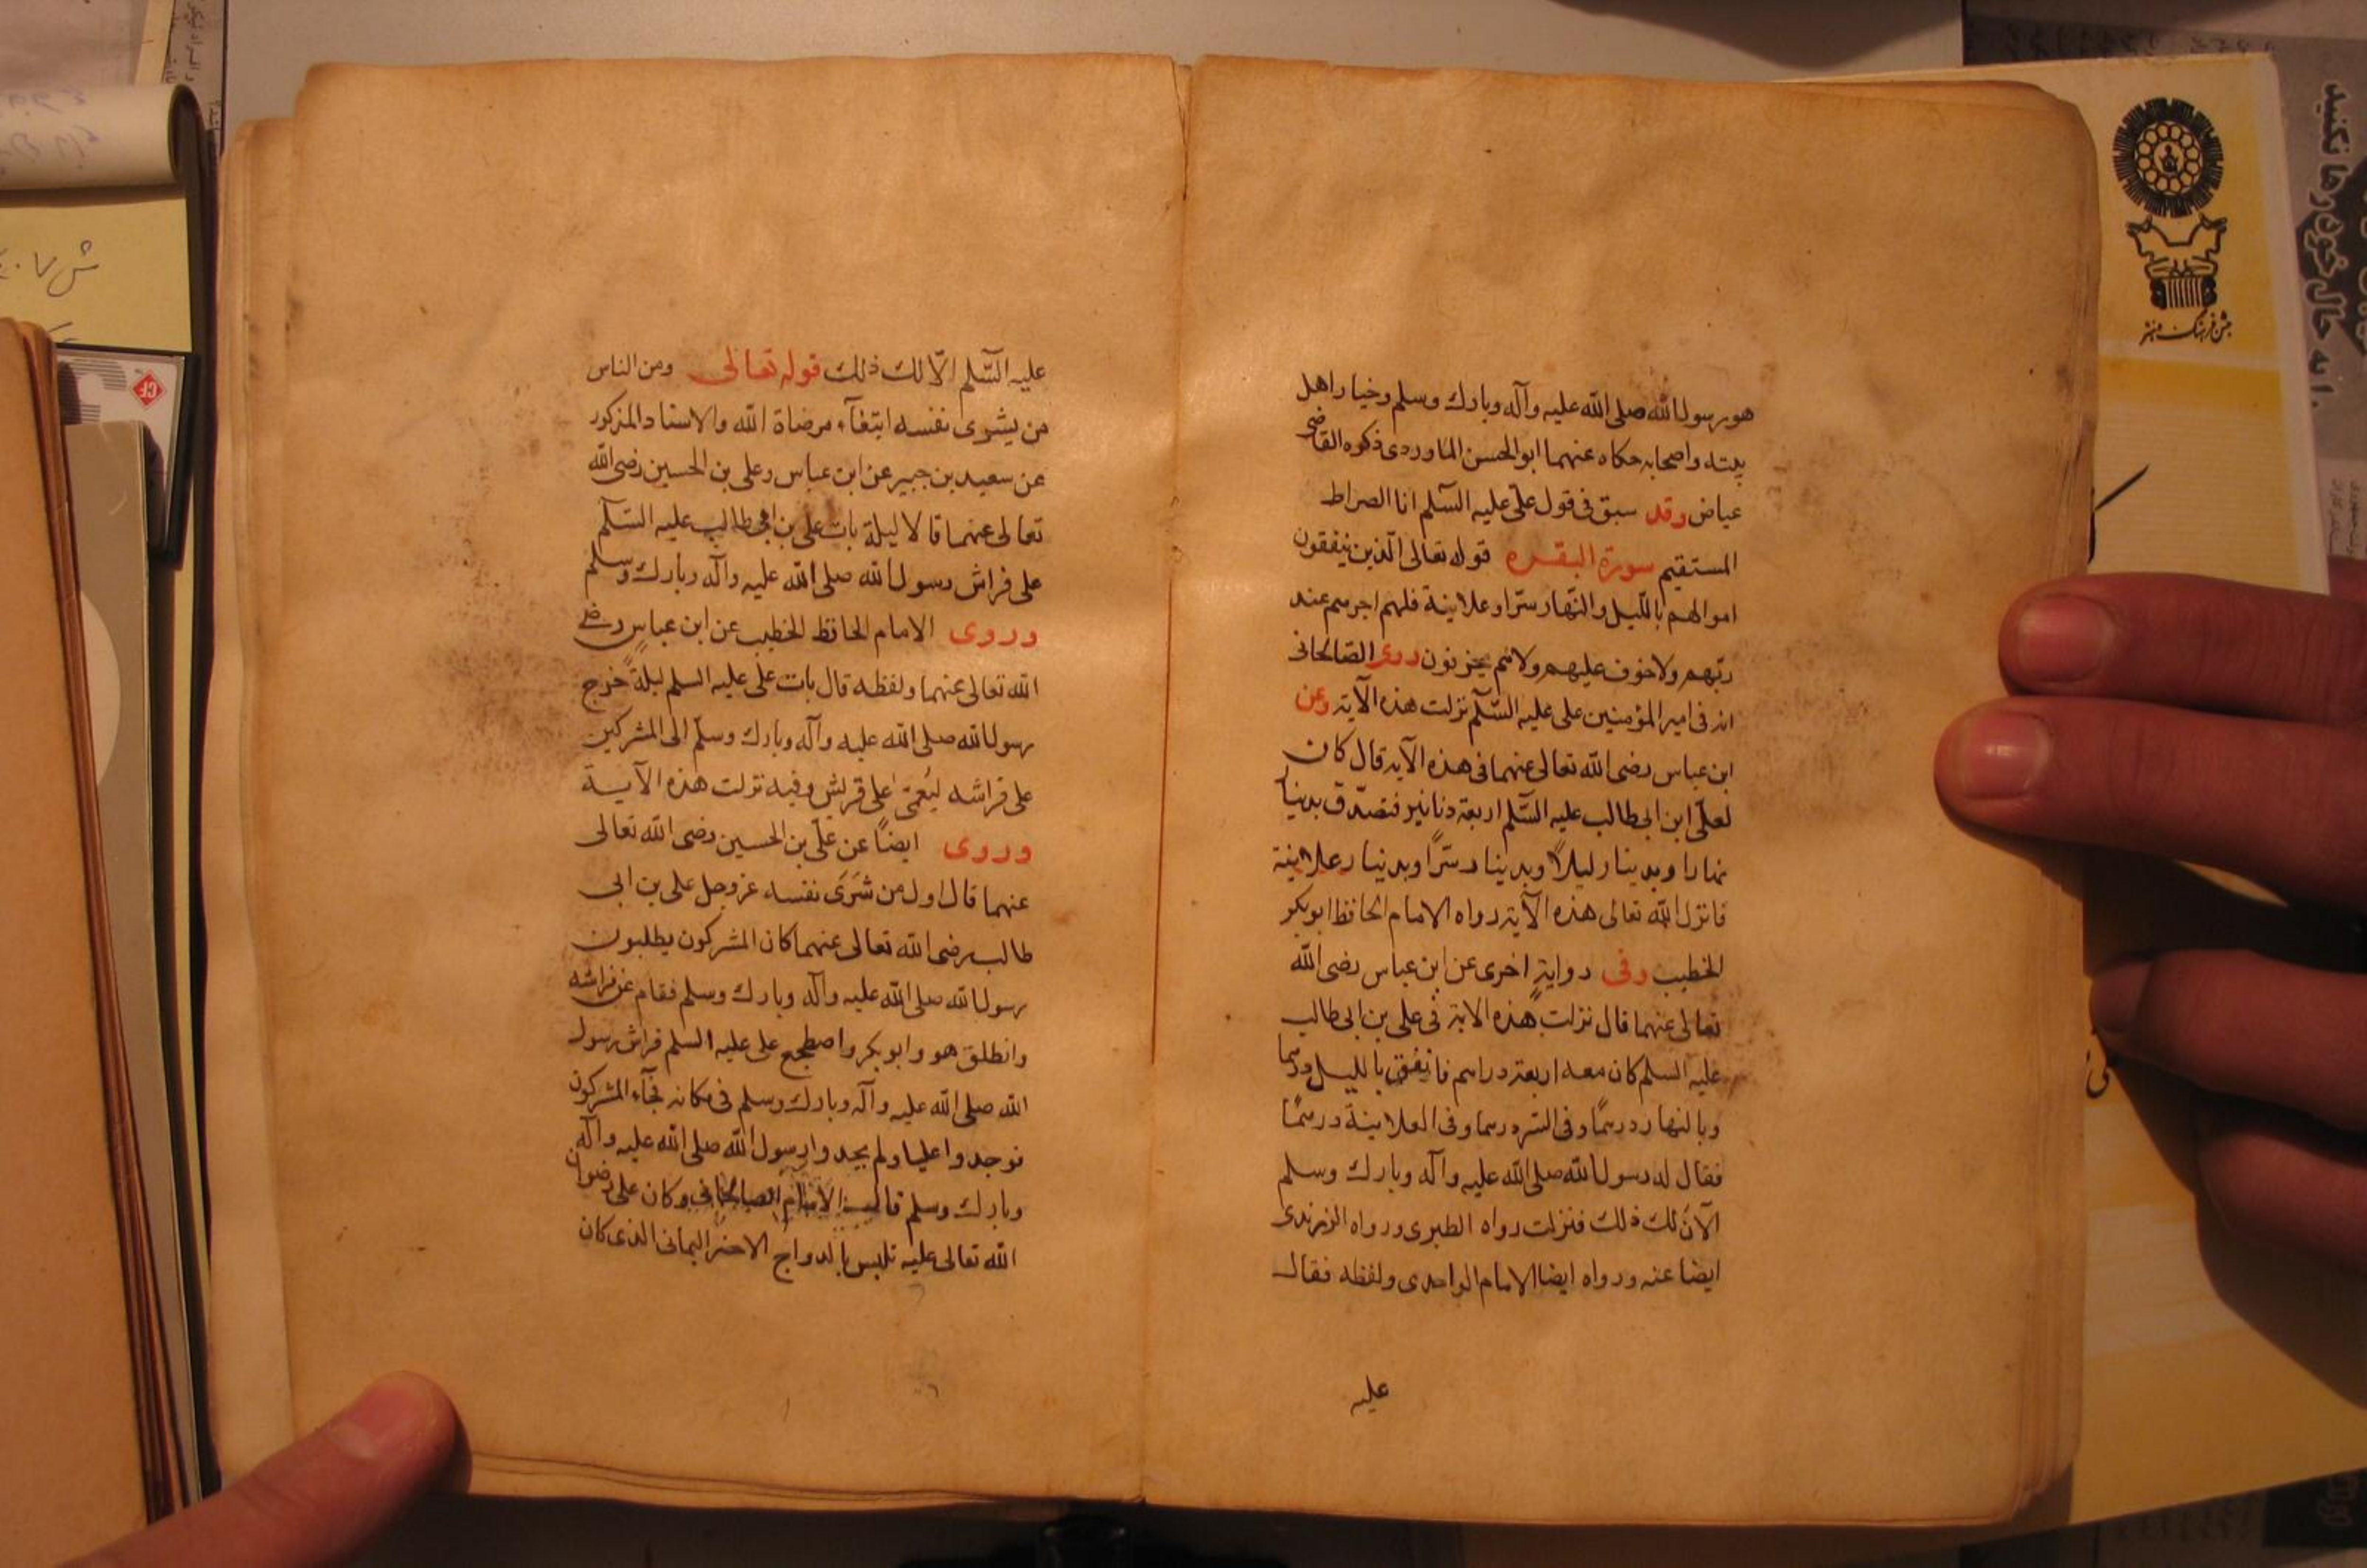 هو رسول الله صلى الله عليه وآله وبارك وسلم وخيار اهل
بيته واصحابه حكاه عنهما ابو الحسن الماوردى ذكره القاضى
عياض وقد سبق فى قول على عليه السّلم انا الصراط
المستقيم سورة البقره قوله تعالى الّذين ينفقون
اموالهم باللّيل والنّهار سرّا وعلانية فلهم اجرهم عند
ربّهم ولا خوف عليهم ولا هم يحزنون روى الصّالحانى
انه فى امير المؤمنين على عليه السّلم نزلت هذه الآية وعن
ابن عباس رضى الله تعالى عنهما فى هذه الآية قال كان
لعلىّ ابن ابى طالب عليه السّلم اربعة دنانير فتصدّق بدينار
نهارا وبدينار ليلاً وبدينار سرّاً وبدينار علانية
فانزل الله تعالى هذه الآية رواه الامام الحافظ ابو بكر
الخطيب وفى رواية اخرى عن ابن عباس رضى الله
تعالى عنهما قال نزلت هذه الاية فى على بن ابى طالب
عليه السلم كان معه اربعة دراهم فانفق بالليل درهما
وبالنهار درهمًا وفى السر درهما وفى العلانية درهمًا
فقال له رسول الله صلى الله عليه وآله وبارك وسلم
الآن لك ذلك فنزلت رواه الطبرى ورواه الزرندى
ايضا عنه ورواه ايضا الامام الواحدى ولفظه فقال
عليه
عليه السّلم الّا لك ذلك قوله تعالى ومن الناس
من يشرى نفسه ابتغآء مرضاة الله والاسناد المذكور
عن سعيد بن جبير عن ابن عباس وعلى بن الحسين رضى الله
تعالى عنهما قالا ليلة بات على بن ابى طالب عليه السّلم
على فراش رسول الله صلى الله عليه وآله وبارك وسلم
وروى الامام الحافظ الخطيب عن ابن عباس رضى
الله تعالى عنهما ولفظه قال بات على عليه السلم ليلة خرج
رسول الله صلى الله عليه وآله وبارك وسلم الى المشركين
على فراشه ليُعمّى على قريش وفيه نزلت هذه الآية
وروى ايضاً عن علىّ بن الحسين رضى الله تعالى
عنهما قال اول من شَرَى نفسه عز وجل على بن ابى
طالب رضى الله تعالى عنهما كان المشركون يطلبون
رسول الله صلى الله عليه وآله وبارك وسلم فقام عن فراشه
وانطلق هو وابو بكر واضطجع على عليه السلم فراش رسول
الله صلى الله عليه وآله وبارك وسلم فى مكانه فجآء المشركون
فوجدوا عليا ولم يجدوا رسول الله صلى الله عليه وآله
وبارك وسلم قال الامام الصالحانى وكان على رضوان
الله تعالى عليه تلبس بالدواج الاخضر اليمانى الذى كان
جشن فرهنگ و هنر
CF